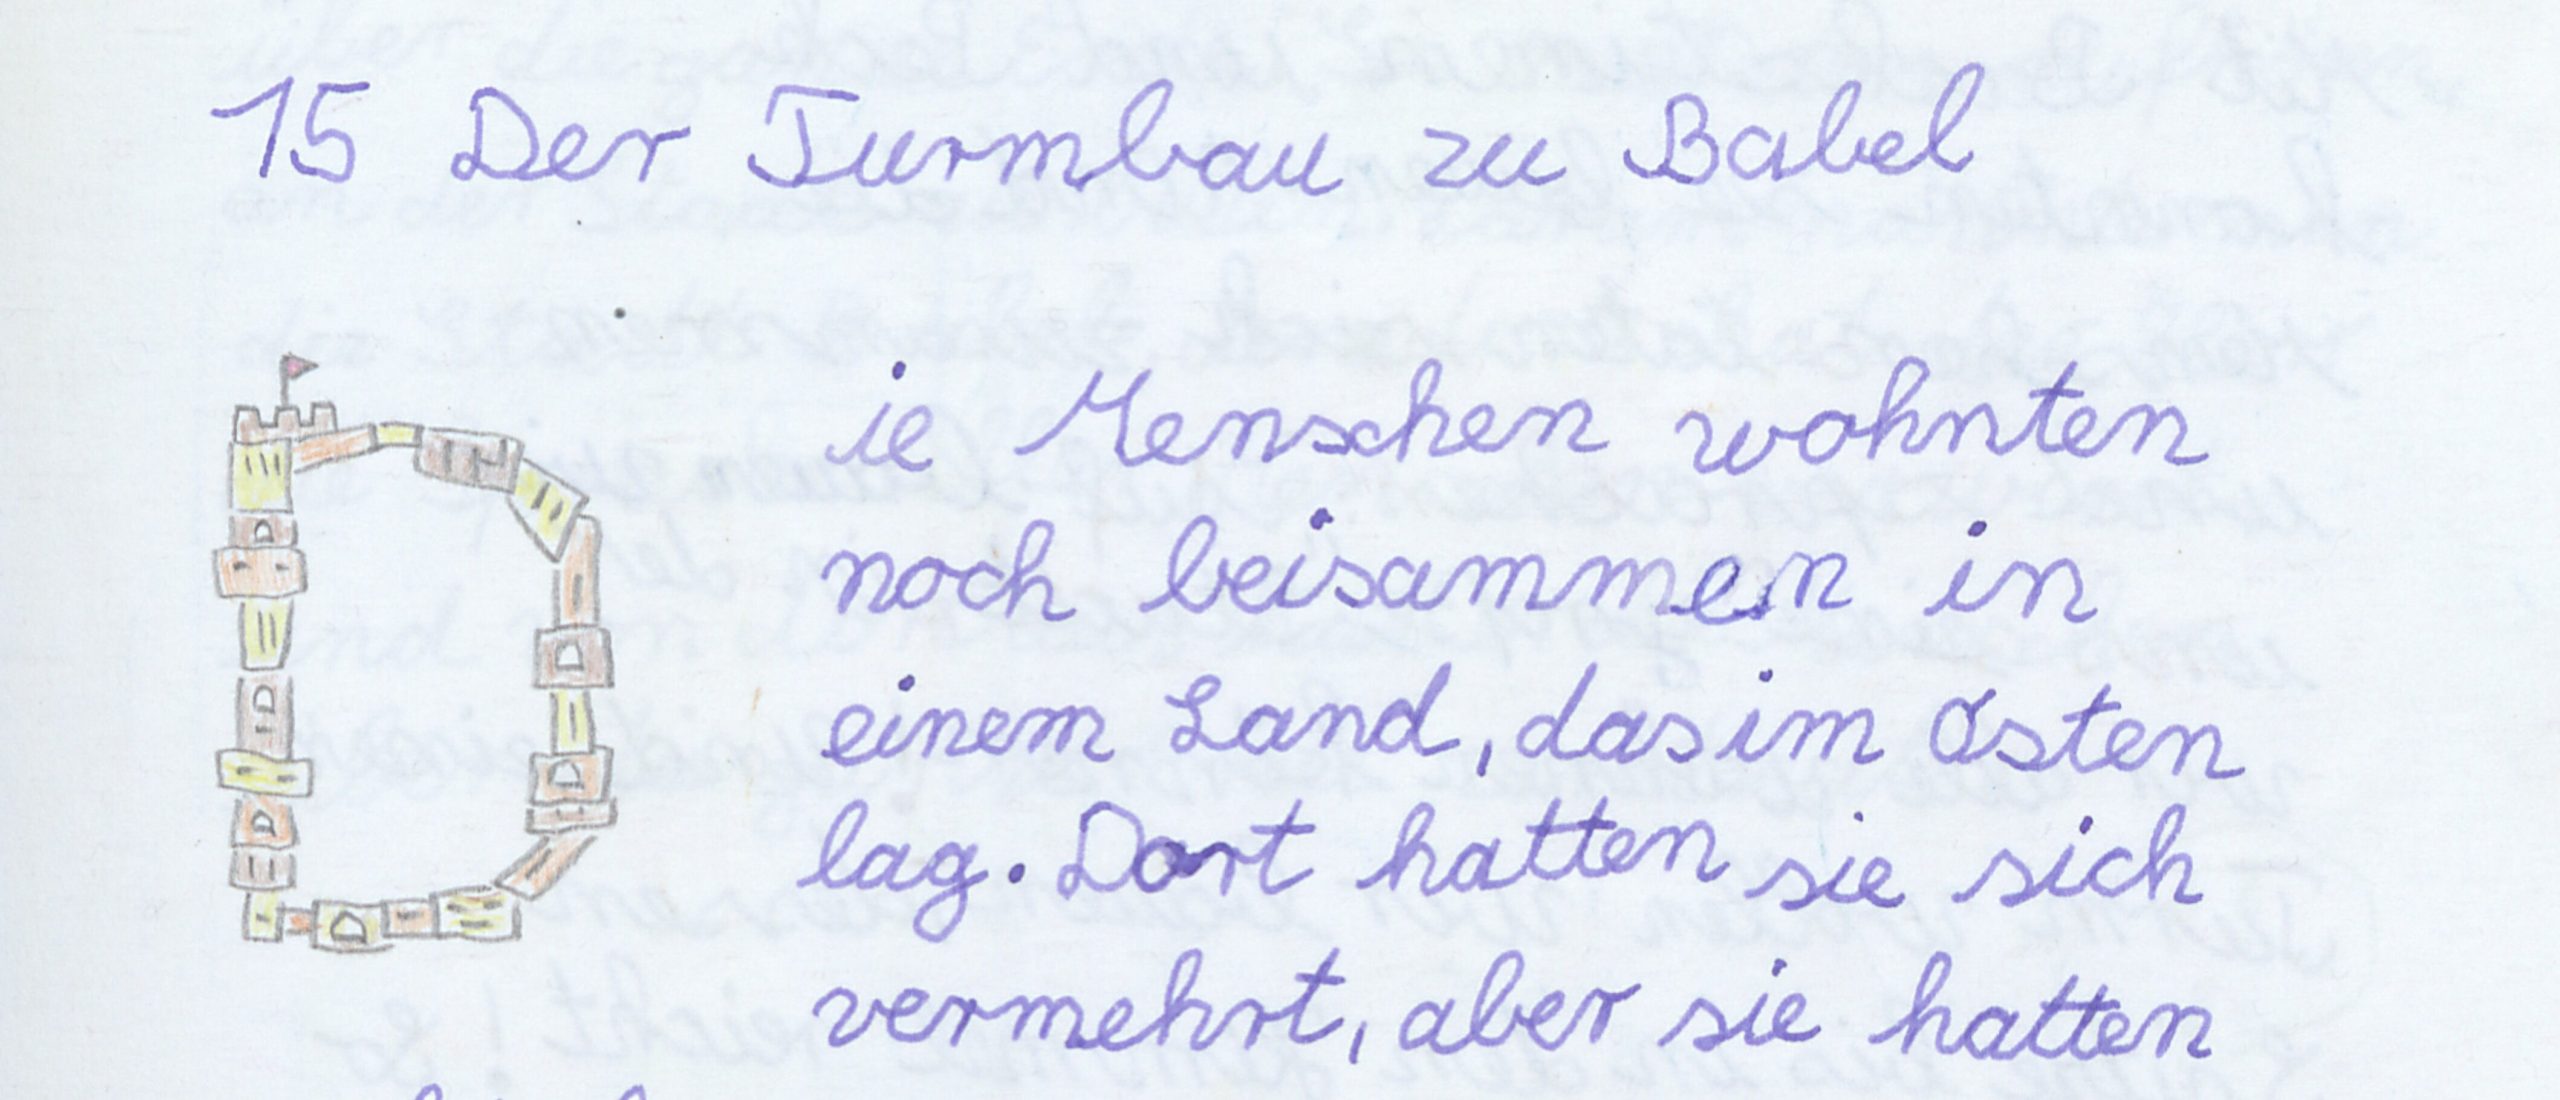 15 Der Turmbau zu Babel
Die Menschen wohnten
noch beisammen in
einem Land, das im Osten
lag. Dort hatten sie sich
vermehrt, aber sie hatten